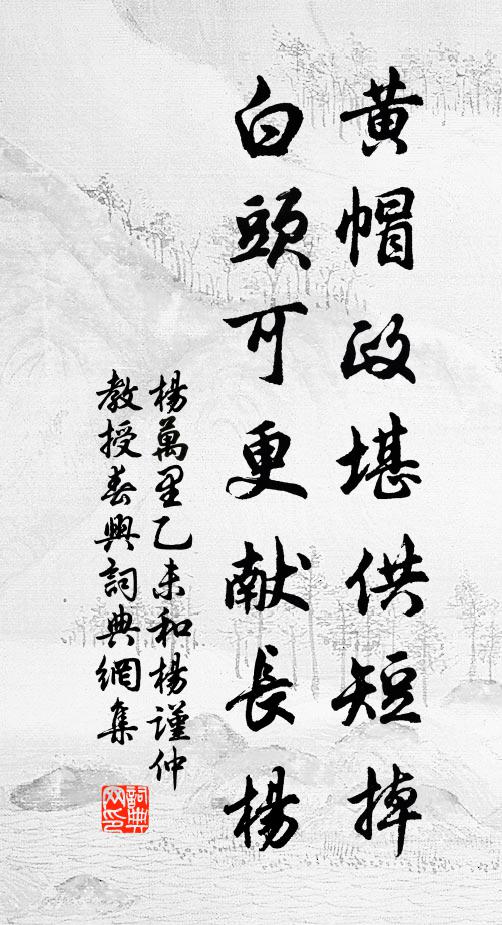 黃帽政堪供短掉
白頭可更献長楊
楊萬里乙未和楊謹仲
教授春興詞典網集
詞典网印